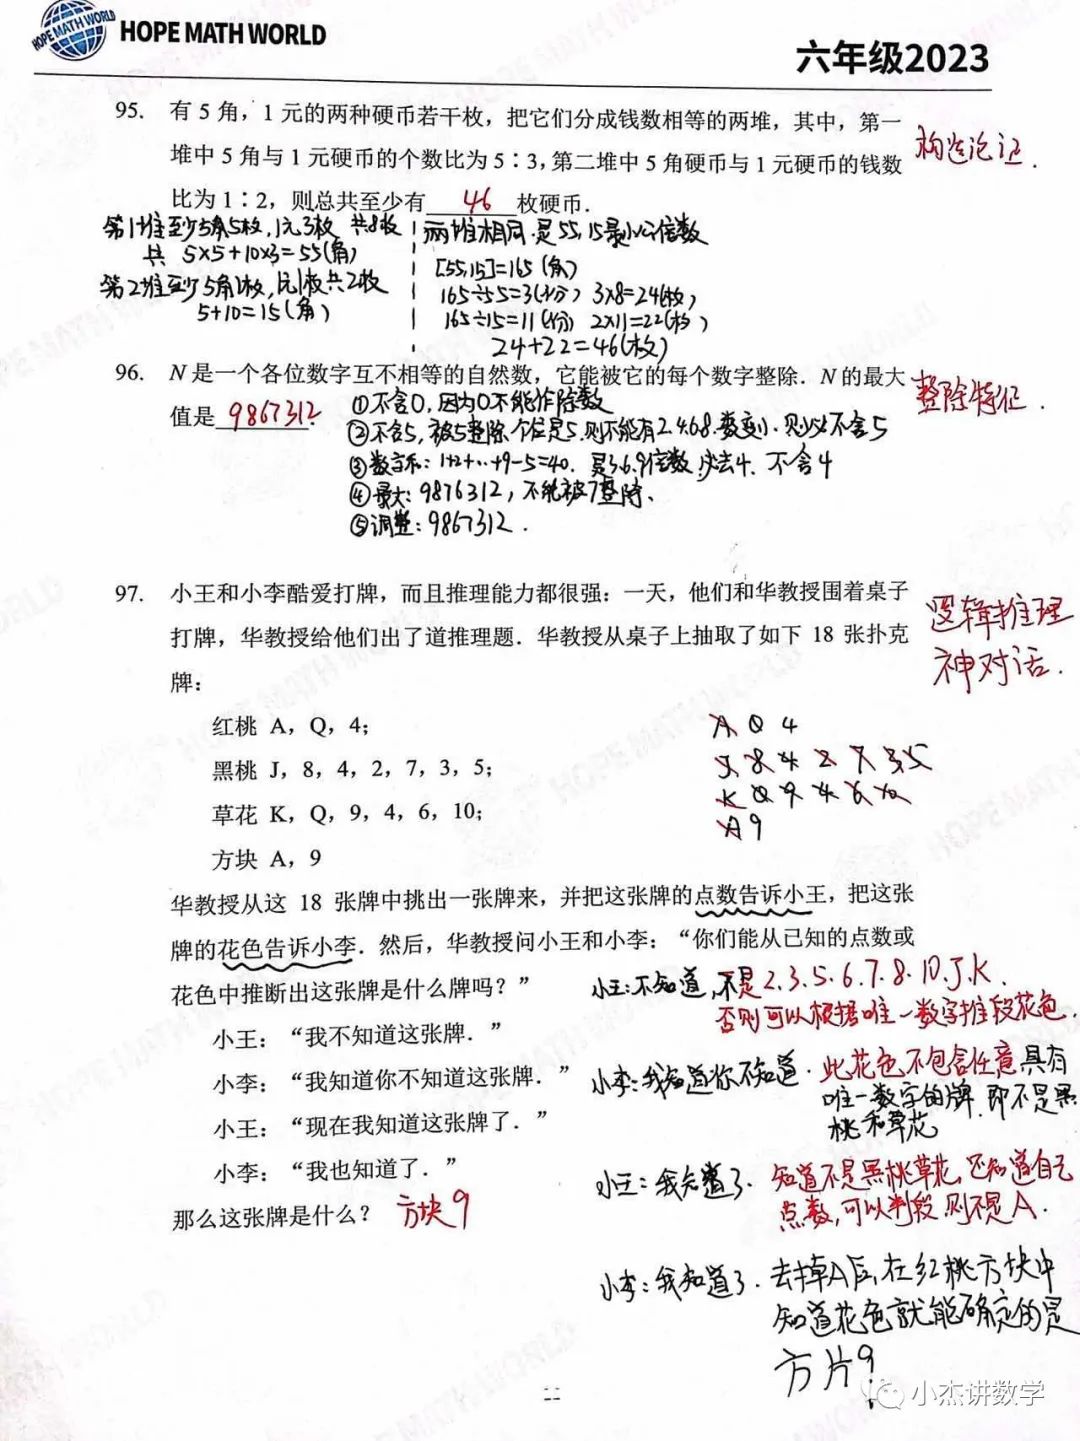 HOPE MATH WORLD
HOPE MATH WORLD
六年级2023
95. 有 5 角，1 元的两种硬币若干枚，把它们分成钱数相等的两堆，其中，第一
堆中 5 角与 1 元硬币的个数比为 5∶3，第二堆中 5 角硬币与 1 元硬币的钱数
比为 1∶2，则总共至少有 46 枚硬币．
构造论证．
第1堆至少5角5枚，1元3枚 共8枚
共 5×5+10×3=55(角)
第2堆至少5角1枚，1元1枚共2枚
5+10=15(角)
两堆相同．是55,15最小公倍数
[55,15]=165(角)
165÷55=3(份) 3×8=24(枚)
165÷15=11(份) 2×11=22(枚)
24+22=46(枚)
96. N 是一个各位数字互不相等的自然数，它能被它的每个数字整除．N 的最大
值是 9867312．
整除特征．
①不含0，因为0不能作除数
②不含5，被5整除个位是5．则不能有2.4.6.8．数变小．所以不含5
③数字和：1+2+…+9-5=40．是3.6.9倍数，少去4．不含4
④最大：9876312，不能被7整除．
⑤调整：9867312．
97. 小王和小李酷爱打牌，而且推理能力都很强：一天，他们和华教授围着桌子
打牌，华教授给他们出了道推理题．华教授从桌子上抽取了如下 18 张扑克
牌：
逻辑推理
神对话．
红桃 A，Q，4；
黑桃 J，8，4，2，7，3，5；
草花 K，Q，9，4，6，10；
方块 A，9
A Q 4
J 8 4 2 7 3 5
K Q 9 4 6 10
A 9
华教授从这 18 张牌中挑出一张牌来，并把这张牌的点数告诉小王，把这张
牌的花色告诉小李．然后，华教授问小王和小李：“你们能从已知的点数或
花色中推断出这张牌是什么牌吗？”
小王：“我不知道这张牌．”
小李：“我知道你不知道这张牌．”
小王：“现在我知道这张牌了．”
小李：“我也知道了．”
那么这张牌是什么？ 方块9
小王：不知道，不是2.3.5.6.7.8.10.J.K．
否则可以根据唯一数字推段花色．
小李：我知道你不知道．此花色不包含任意具有
唯一数字的牌．即不是黑
桃和草花
小王：我知道了．知道不是黑桃草花，还知道自己
点数，可以判段，则不是A．
小李：我知道了．去掉A后，在红桃方块中
知道花色就能确定的是
方片9
小杰讲数学